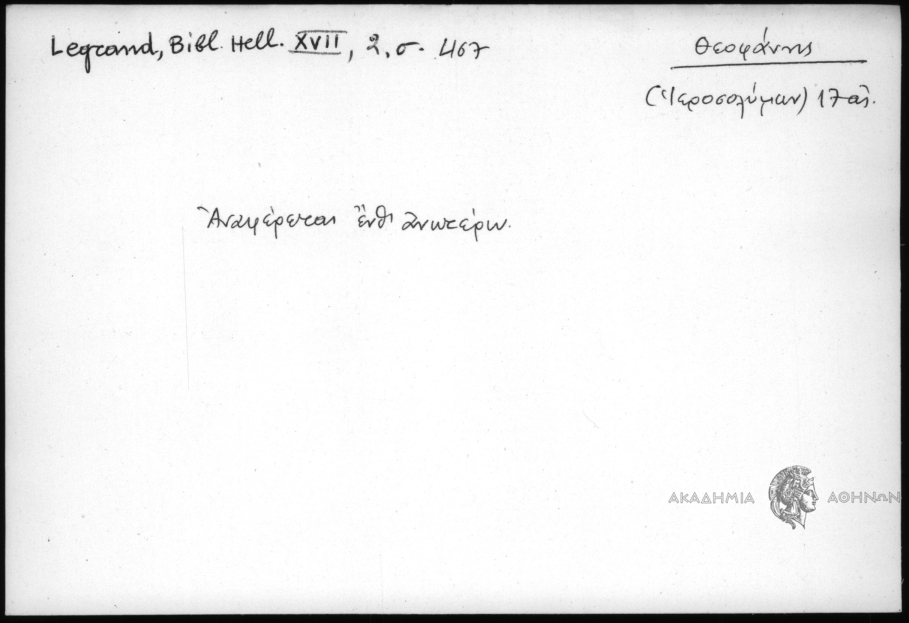 Legrand, Bibl. Hell. XVII, 2, σ. 467
Θεοφάνης
(Ἱεροσολύμων) 17 αἰ.
Ἀναφέρεται ἔνθ' ἀνωτέρω.
ΑΚΑΔΗΜΙΑ ΑΘΗΝΩΝ